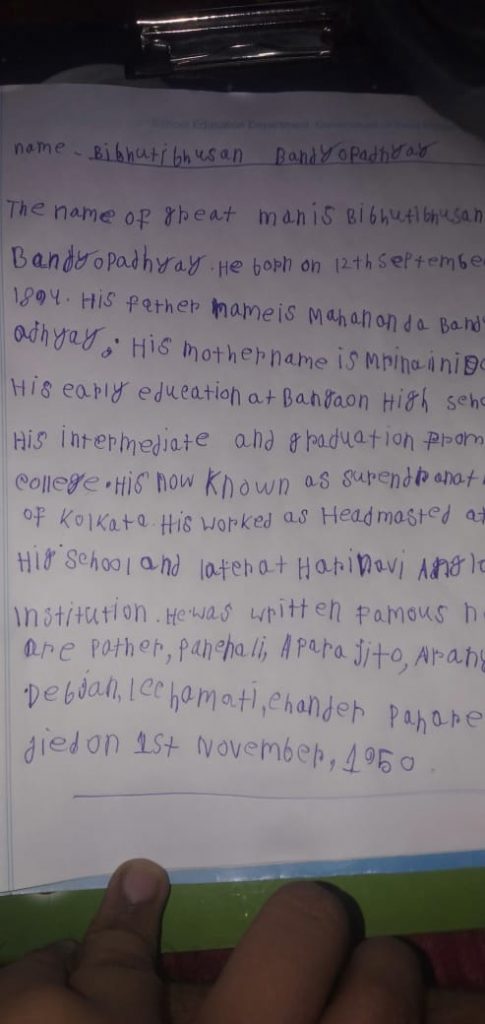 School Education Department, Government of West
name - Bibhutibhusan Bandyopadhyay
The name of great man is Bibhutibhusan
Bandyopadhyay. He born on 12th Septembe
1894. His father name is Mahananda Band
adhyay, His mother name is Mrinaini D
His early education at Bangaon High scho
His intermediate and graduation From
college. His now Known as Surendranat
of Kolkata. His worked as Headmasted at
High School and later at Harinavi Anglo
Institution. He was written Famous n
are Pather, Panchali, Aparajito, Arany
Debjan, Icchamati, Chander Pahare
died on 1st November, 1950.